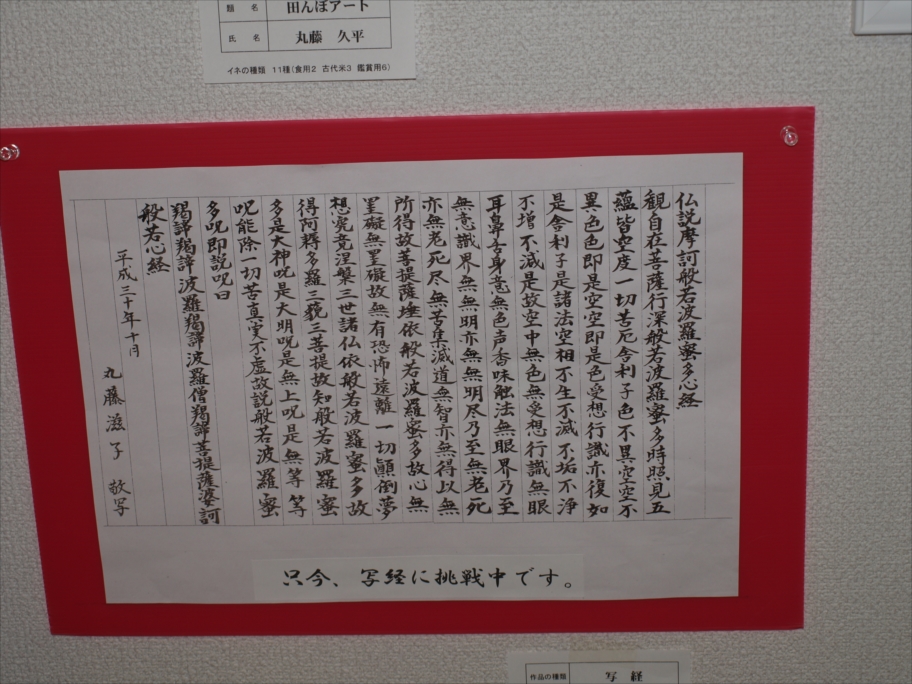 題 名 田んぼアート
氏 名 丸藤 久平
イネの種類 11種(食用2 古代米3 鑑賞用6)
仏説摩訶般若波羅蜜多心経
観自在菩薩行深般若波羅蜜多時照見五
蘊皆空度一切苦厄舎利子色不異空空不
異色色即是空空即是色受想行識亦復如
是舎利子是諸法空相不生不滅不垢不浄
不増不減是故空中無色無受想行識無眼
耳鼻舌身意無色声香味触法無眼界乃至
無意識界無無明亦無無明尽乃至無老死
亦無老死尽無苦集滅道無智亦無得以無
所得故菩提薩埵依般若波羅蜜多故心無
罣礙無罣礙故無有恐怖遠離一切顛倒夢
想究竟涅槃三世諸仏依般若波羅蜜多故
得阿耨多羅三藐三菩提故知般若波羅蜜
多是大神呪是大明呪是無上呪是無等等
呪能除一切苦真実不虚故説般若波羅蜜
多呪即説呪曰
羯諦羯諦波羅羯諦波羅僧羯諦菩提薩婆訶
般若心経
平成三十年十月
丸藤滋子 敬写
只今、写経に挑戦中です。
作品の種類 写 経